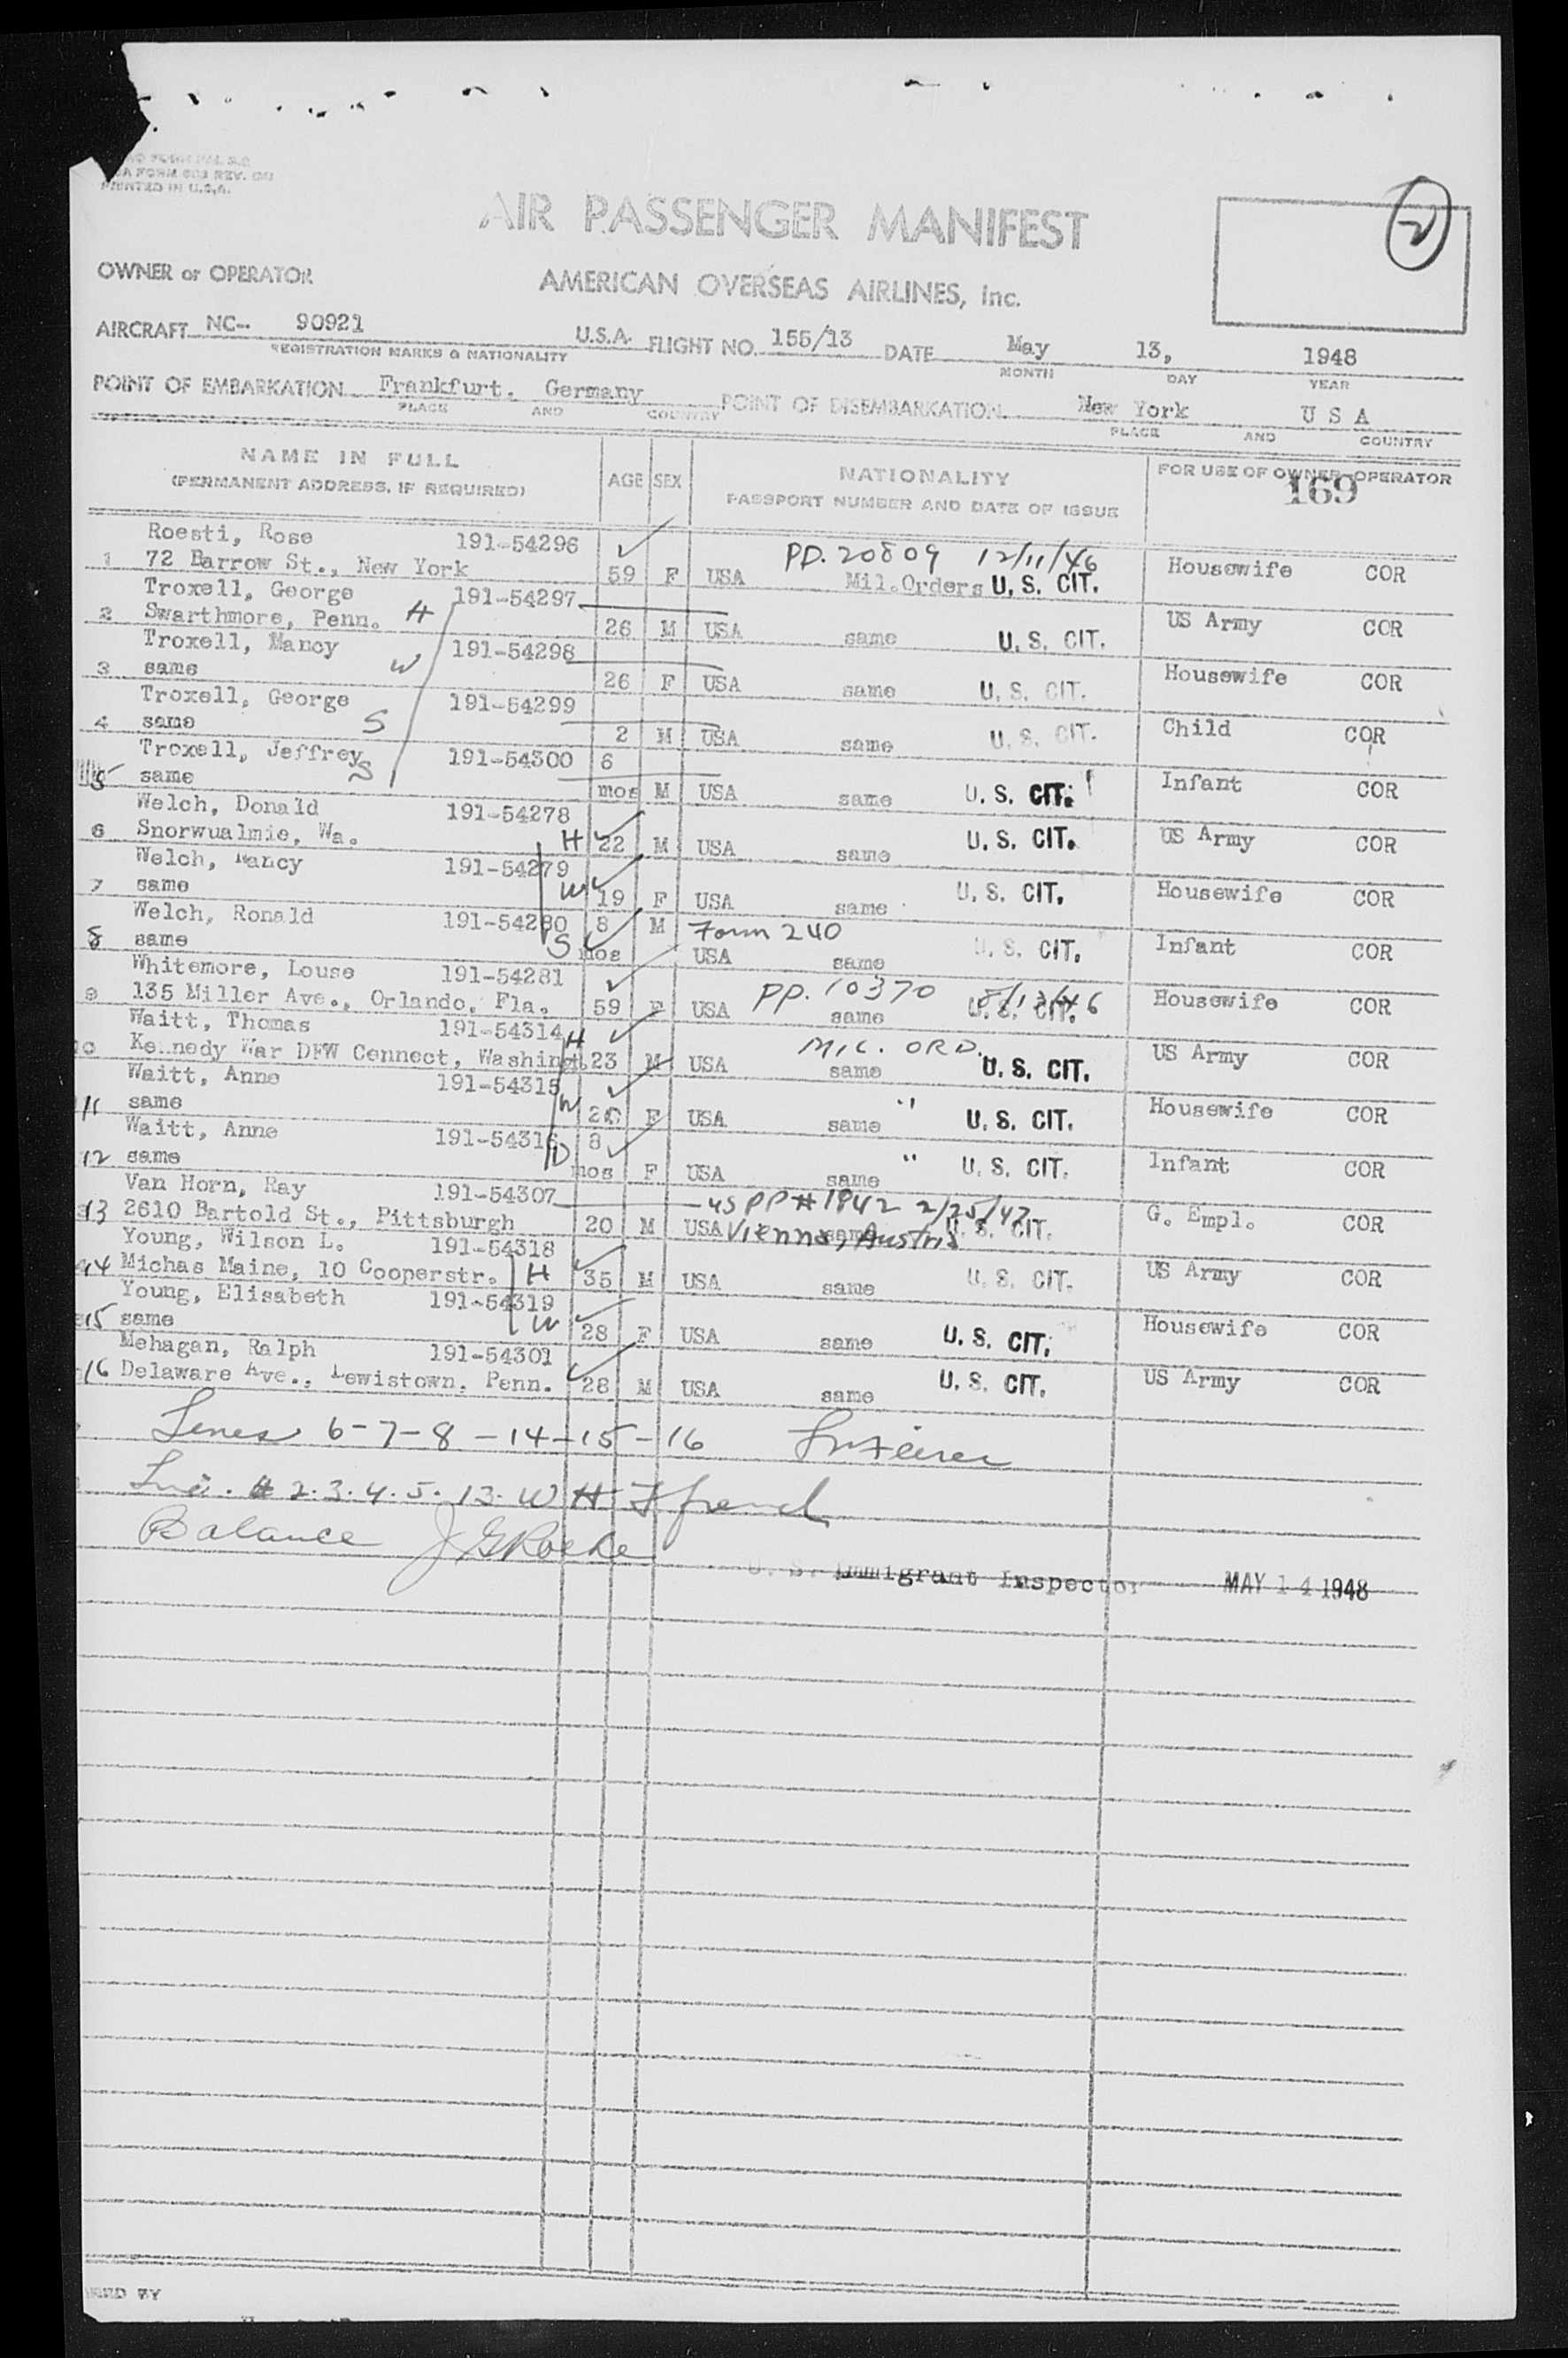 PRINTED IN U.S.A.
2
AIR PASSENGER MANIFEST
OWNER or OPERATOR AMERICAN OVERSEAS AIRLINES, Inc.
AIRCRAFT NC-- 90921 U.S.A. FLIGHT NO. 155/13 DATE May 13, 1948
REGISTRATION MARKS & NATIONALITY MONTH DAY YEAR
POINT OF EMBARKATION Frankfurt, Germany POINT OF DISEMBARKATION New York U S A
PLACE AND COUNTRY PLACE AND COUNTRY
NAME IN FULL AGE SEX NATIONALITY FOR USE OF OWNER-OPERATOR
(PERMANENT ADDRESS, IF REQUIRED) PASSPORT NUMBER AND DATE OF ISSUE 169
Roesti, Rose 191-54296 PP. 20809 12/11/46
1 72 Barrow St., New York 59 F USA Mil.Orders U. S. CIT. Housewife COR
Troxell, George 191-54297
2 Swarthmore, Penn. H 26 M USA same U. S. CIT. US Army COR
Troxell, Nancy 191-54298
3 same W 26 F USA same U. S. CIT. Housewife COR
Troxell, George 191-54299
4 same S 2 M USA same U. S. CIT. Child COR
Troxell, Jeffrey 191-54300 6
5 same S mos M USA same U. S. CIT. Infant COR
Welch, Donald 191-54278
6 Snorwualmie, Wa. H 22 M USA same U. S. CIT. US Army COR
Welch, Nancy 191-54279
7 same W 19 F USA same U. S. CIT. Housewife COR
Welch, Ronald 191-54280 8 M Form 240
8 same S mos USA same U. S. CIT. Infant COR
Whitemore, Louse 191-54281 PP. 10370
9 135 Miller Ave., Orlando, Fla. 59 F USA same U. S. CIT. Housewife COR
Waitt, Thomas 191-54314 H MIL. ORD.
10 Kennedy War DFW Connect, Washington 23 M USA same U. S. CIT. US Army COR
Waitt, Anne 191-54315
11 same W 20 F USA same " U. S. CIT. Housewife COR
Waitt, Anne 191-54316 8
12 same D mos F USA same " U. S. CIT. Infant COR
Van Horn, Ray 191-54307 US PP# 1842 2/25/47
13 2610 Bartold St., Pittsburgh 20 M USA Vienna, Austria same U. S. CIT. G. Empl. COR
Young, Wilson L. 191-54318
14 Michas Maine, 10 Cooperstr. H 35 M USA same U. S. CIT. US Army COR
Young, Elisabeth 191-54319
15 same W 28 F USA same U. S. CIT. Housewife COR
Mehagan, Ralph 191-54301
16 Delaware Ave., Lewistown, Penn. 28 M USA same U. S. CIT. US Army COR
Lines 6-7-8-14-15-16
# 2.3.4.5.13. W H
Balance J G Roche
U. S. Immigrant Inspector MAY 14 1948